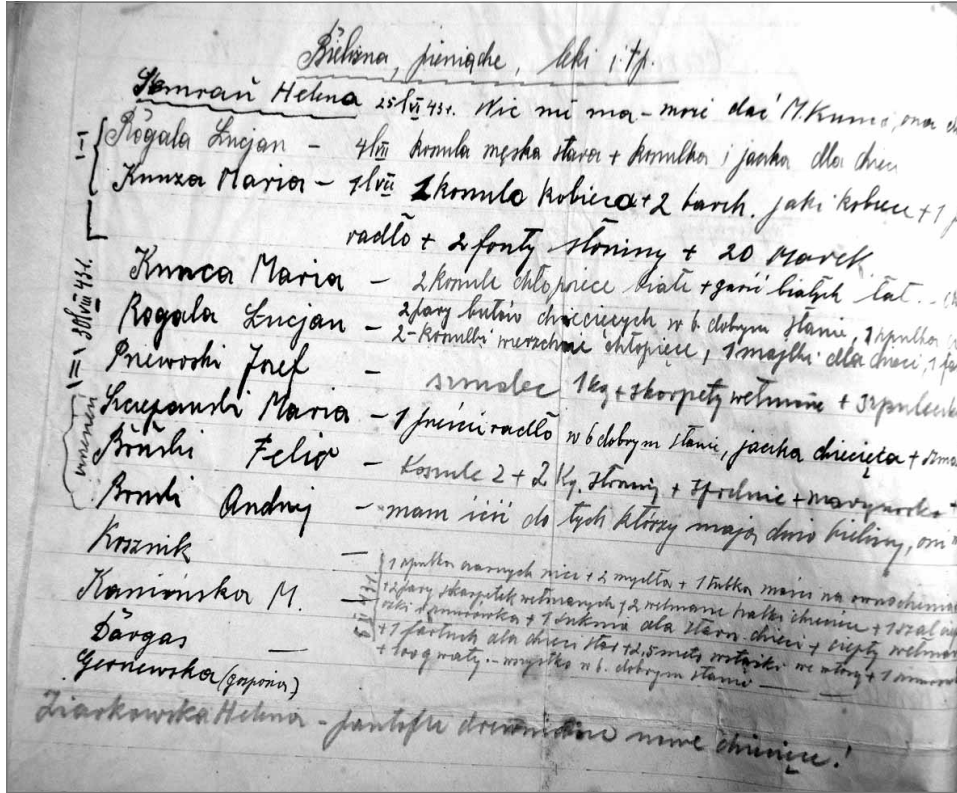 Bielizna, pieniądze, leki i.tp.
Semrau Helena 25/VI 43r. Nic nie ma - może dać M. Kunca, ona
Rogala Lucjan - 4/VII koszula męska stara + koszulka i jacka dla dzieci
Kunza Maria - 7/VII 1 koszula kobieca + 2 barch. jaki kobiece + 1
radło + 2 fonty słoniny + 20 Marek
I
Kunca Maria - 2 koszule chłopięce białe + garść białych łat.
Rogala Lucjan - 2 pary butów dziecięcych w b. dobrym stanie, szpulka
2 - koszulki wierzchnie chłopięce, 1 majtki dla dzieci, 1
Pniewoski Josef - szmalec 1 kg + skarpety wełniane + 3 szpuleczk
Szczepanski Maria - 1 prześcieradło w b dobrym stanie, jacka dziecięca +
Felix - Koszule 2 + 2 Kg. słoniny + spodnie + marynarka +
Andrzej - mam iść do tych którzy mają dużo bielizny, oni
II 30/VIII 43r.
wrzesień
Kosznik -
Kamińska M. - 1 szpulka czarnych nici + 2 mydła + 1 tubka maści na
+ 2 pary skarpetek wełnianych + 2 wełniane + 1 szal
+ 1 suknia dla dzieci + ciepły
+ 1 fartuch dla dzieci star + 2,5 metr. wstążki we włosy + 1
+ 100 g waty. - wszystko w b. dobrym stanie
43r.
Dargas -
Gerniewska (gosposia)
Ziarkowska Helena - pantofle drewniane nowe dziecięce!